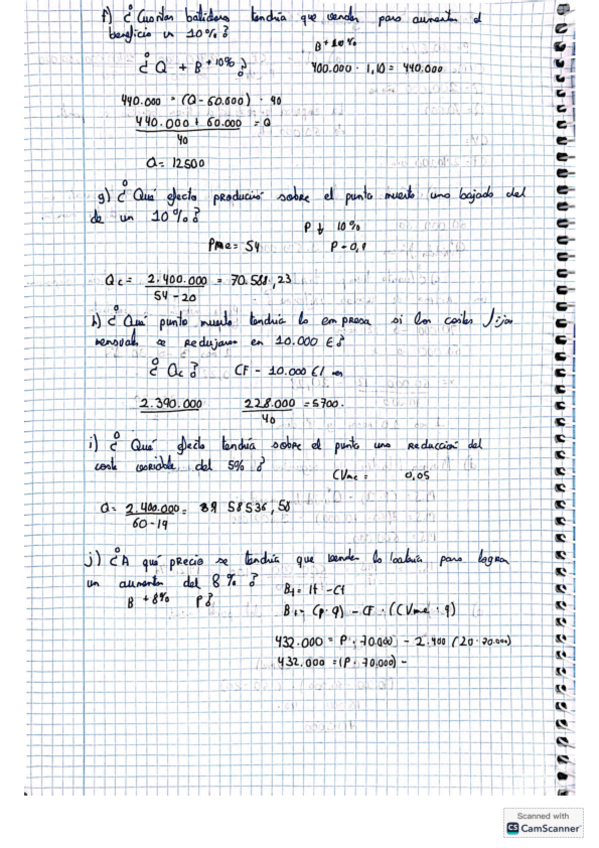 f) ¿ Cuantas batidoras tendría que vender para aumentar el
beneficio un 10%?
B + 10%
¿ Q + B + 10% ?
400.000 · 1,10 = 440.000
440.000 = (Q - 60.000) · 40
440.000 + 60.000 = Q
40
Q = 12500
g) ¿ Qué efecto produció sobre el punto muerto una bajada del
de un 10%?
P ↓ 10%
Pme = 54 P - 0,1
Qc = 2.400.000 = 70.588,23
54 - 20
h) ¿ Qué punto muerto tendría la empresa si los costes fijos
mensuales se redujaran en 10.000 €?
¿ Qc ? CF - 10.000 €/
2.390.000 228.000 = 5700.
40
i) ¿ Qué efecto tendría sobre el punto una reducción del
coste variable del 5%?
CVme = 0,05
Q = 2.400.000 = 58536,58
60 - 19
j) ¿ A qué precio se tendría que vender la para lograr
un aumento del 8%?
B + 8% P?
B = It - Ct
B = (p · q) - CF - (CVme · q)
432.000 = P · 70.000 - 2.400 (20 · 70.000)
432.000 = (P · 70.000) -
Scanned with
CS CamScanner